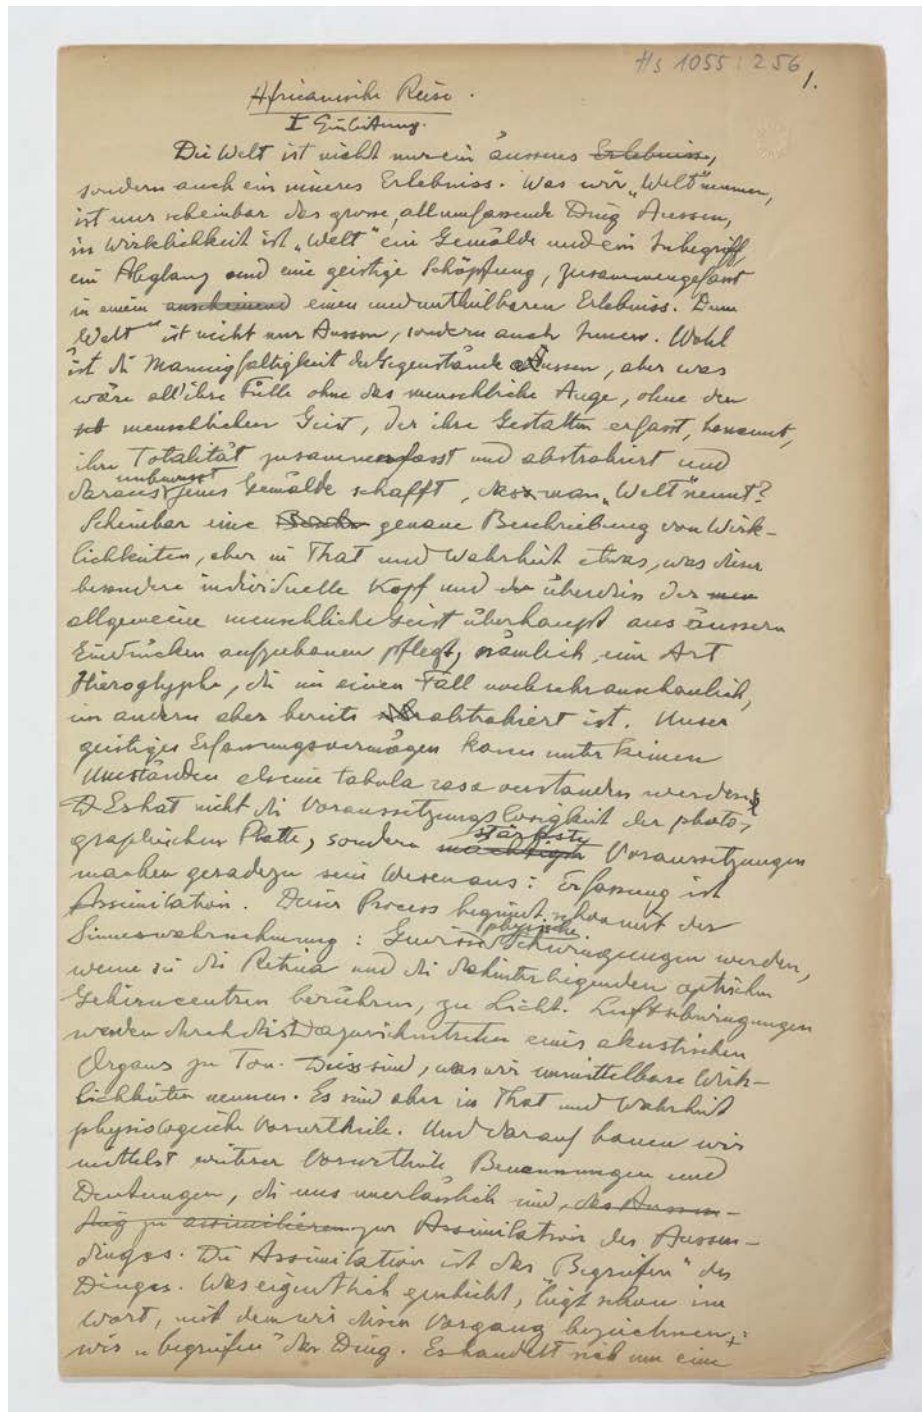 Hs 1055:256
1.
Africanische Reise.
I Einleitung.
Die Welt ist nicht nur ein äusseres Erlebniss,
sondern auch ein inneres Erlebniss. Was wir „Welt" nennen,
ist nur scheinbar das grosse, allumfassende Ding Aussen,
in Wirklichkeit ist „Welt" ein Gemälde und ein Inbegriff,
ein Abglanz und eine geistige Schöpfung, zusammengefasst
in einem anscheinend einen und untheilbaren Erlebniss. Denn
„Welt" ist nicht nur Aussen, sondern auch Innen. Wohl
ist die Mannigfaltigkeit der Gegenstände Aussen, aber was
wäre all' ihre Fülle ohne das menschliche Auge, ohne den
menschlichen Geist, der ihre Gestalten erfasst, benennt,
ihre Totalität zusammenfasst und abstrahiert und
unbewusst
daraus jenes Gemälde schafft, das man „Welt" nennt?
Scheinbar eine genaue Beschreibung von Wirk-
lichkeiten, aber in That und Wahrheit etwas, was dieser
besondere individuelle Kopf und der überdies der
allgemeine menschliche Geist überhaupt aus äussern
Eindrücken aufzubauen pflegt, nämlich eine Art
Hieroglyphe, die im einen Fall noch sehr anschaulich,
im andern aber bereits abstrahiert ist. Unser
geistiges Erfassungsvermögen kann unter keinen
Umständen als eine tabula rasa verstanden werden.
Es hat nicht die Voraussetzungslosigkeit der photo-
graphischen Platte, sondern mächtigen stärkste Voraussetzungen
machen geradezu sein Wesen aus: Erfassung ist
Assimilation. Dieser Process beginnt schon mit der
Sinneswahrnehmung: Gewisse physische Schwingungen werden,
wenn sie die Retina und die dahinterliegenden optischen
Gehirncentren berühren, zu Licht. Luftschwingungen
werden durch das Dazwischentreten eines akustischen
Organs zu Ton. Diess sind, was wir unmittelbare Wirk-
lichkeiten nennen. Es sind aber in That und Wahrheit
physiologische Vorurtheile. Und darauf bauen wir
mittelst weiterer Vorurtheile Benennungen und
Deutungen, die uns unerlässlich sind, das Aussen-
ding zu assimilieren zur Assimilation des Aussen-
dinges. Die Assimilation ist das „Begreifen" des
Dinges. Was eigentlich geschieht, liegt schon im
Wort, mit dem wir diesen Vorgang bezeichnen:
wir „begreifen" das Ding. Es handelt sich um eine